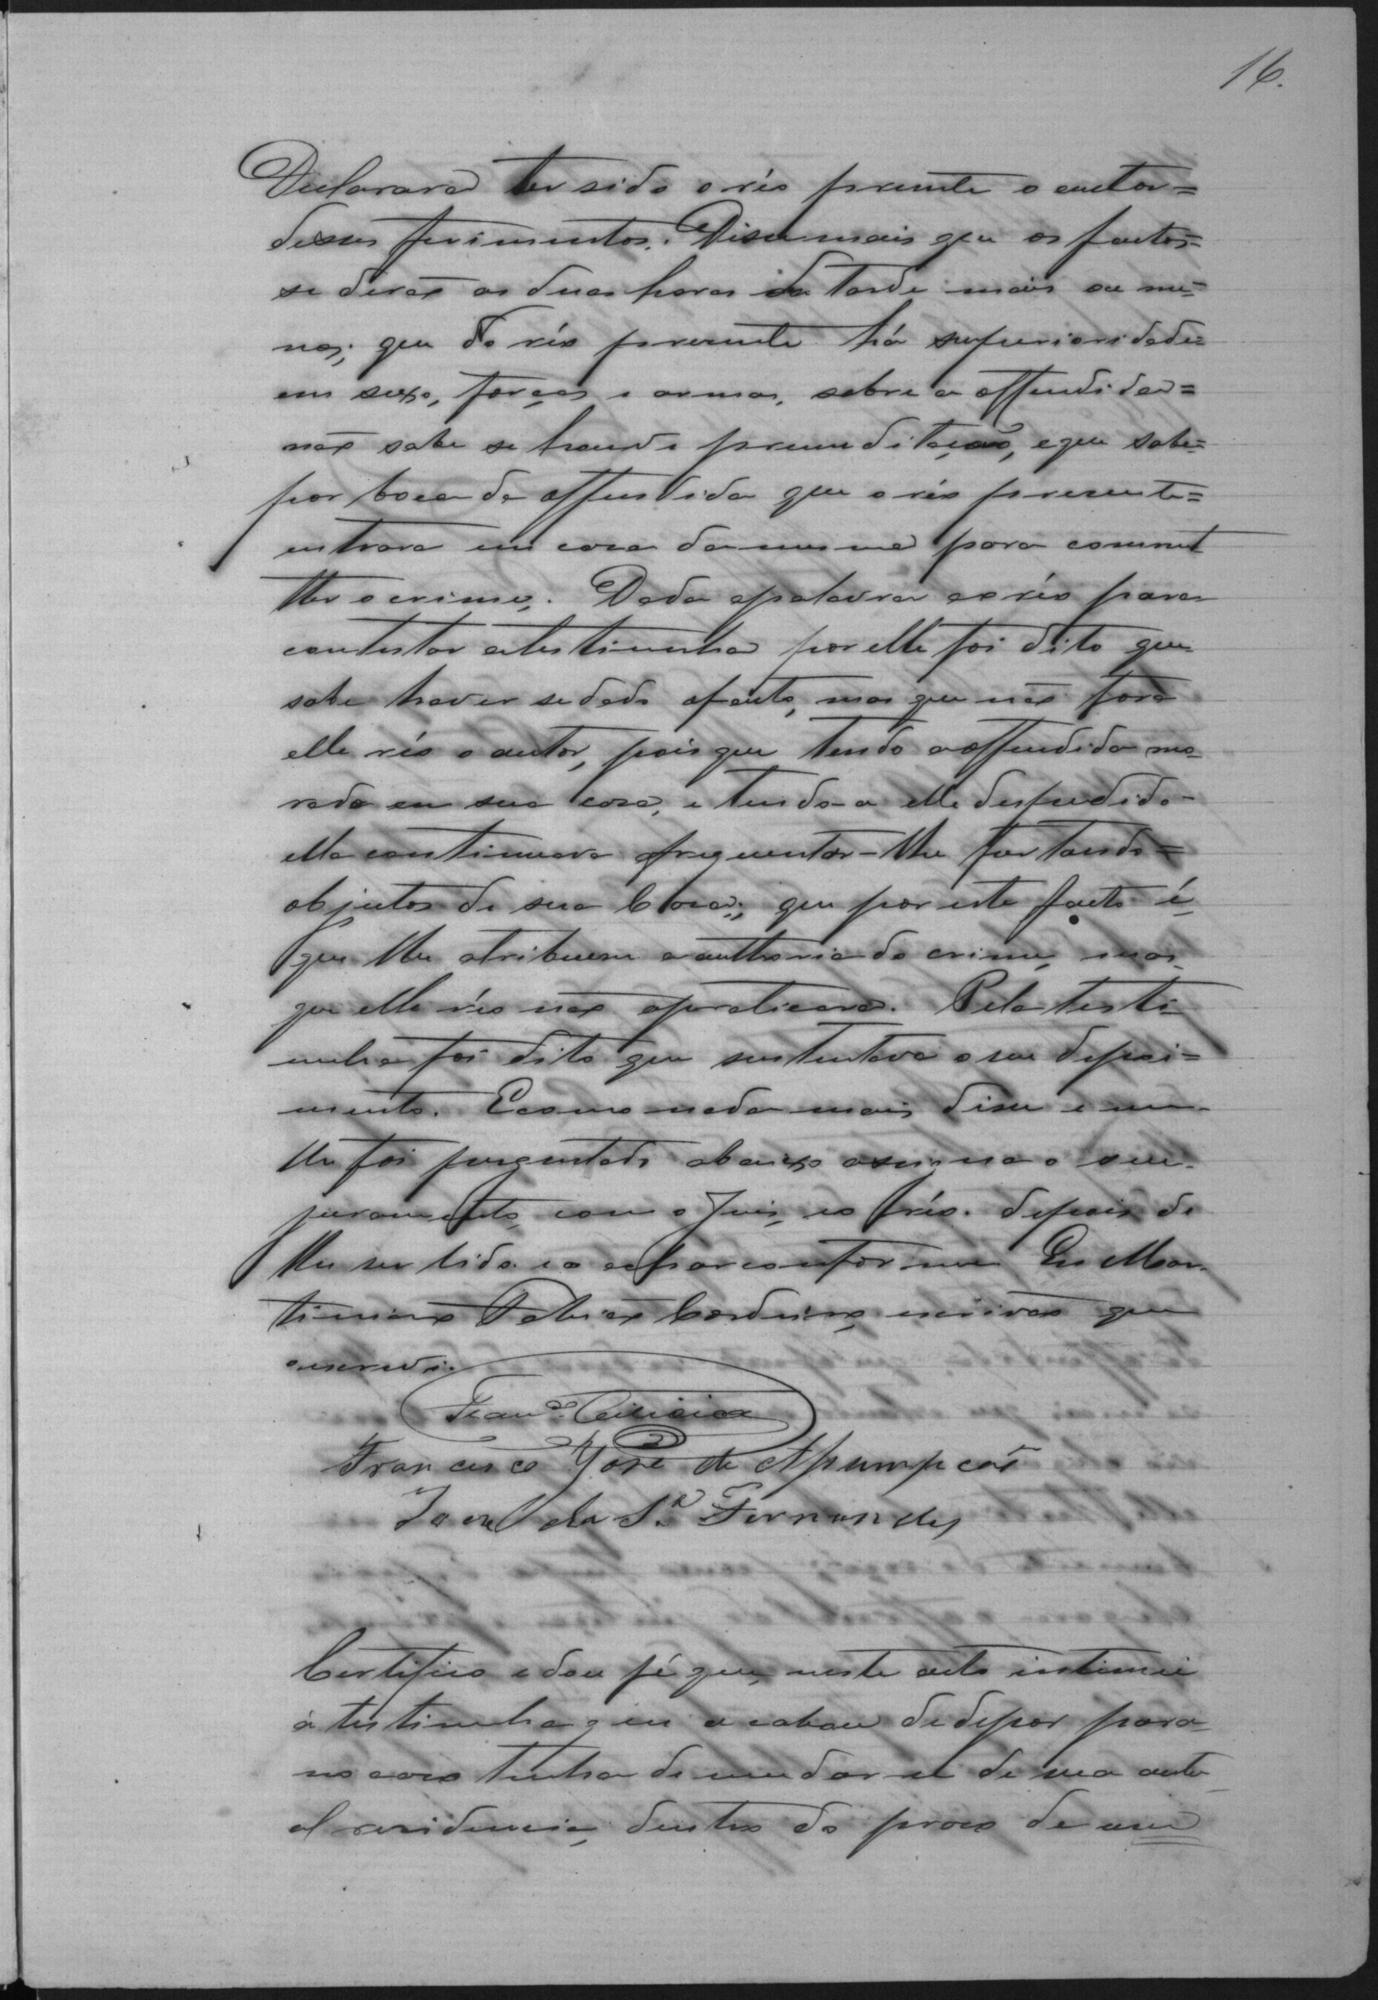 16.
Declarara ter sido o réo presente o auctor=
desses ferimentos. Disse mais que os factos=
se derão as duas horas da tarde mais ou me=
nos; que do réo presente há superioridade=
em sexo, forças e armas, sobre a offendida=
não sabe se houve premeditação, e que sabe=
por boca da offendida que o réo presente=
entrara em casa da mesma para commet
ter o crime. Dada a palavra ao réo para
contestar a testimunha por elle foi dito que
sabe haver se dado o facto, mas que não fora
elle réo o autor, pois que tendo a offendida mo-
rado em sua casa, e tendo-a elle despedido-
ella continuava a frequentar-lhe furtando=
objectos de sua Casa; que por este facto é
que lhe atribuem a authoria do crime, mas
que elle réo não o praticara. Pela testi
munha foi dito que sustentava o seu depoi=
mento. E como nada mais disse e nem
lhe foi perguntado abaixo assigna o seu
juramento, com o Juis, e o réo. depois de
lhe ser lido e o achar conforme Eu Mar
timiano Cordeiro, escrivão que
o escrevi.
Francisco José de Aʃsumpcão
da S.ª Fernandes
Certifico e dou fé que, neste acto intimei
a testimunha que acabou de depor para
no caso tenha de mudar se de sua actu
al residencia, dentro do praso de um